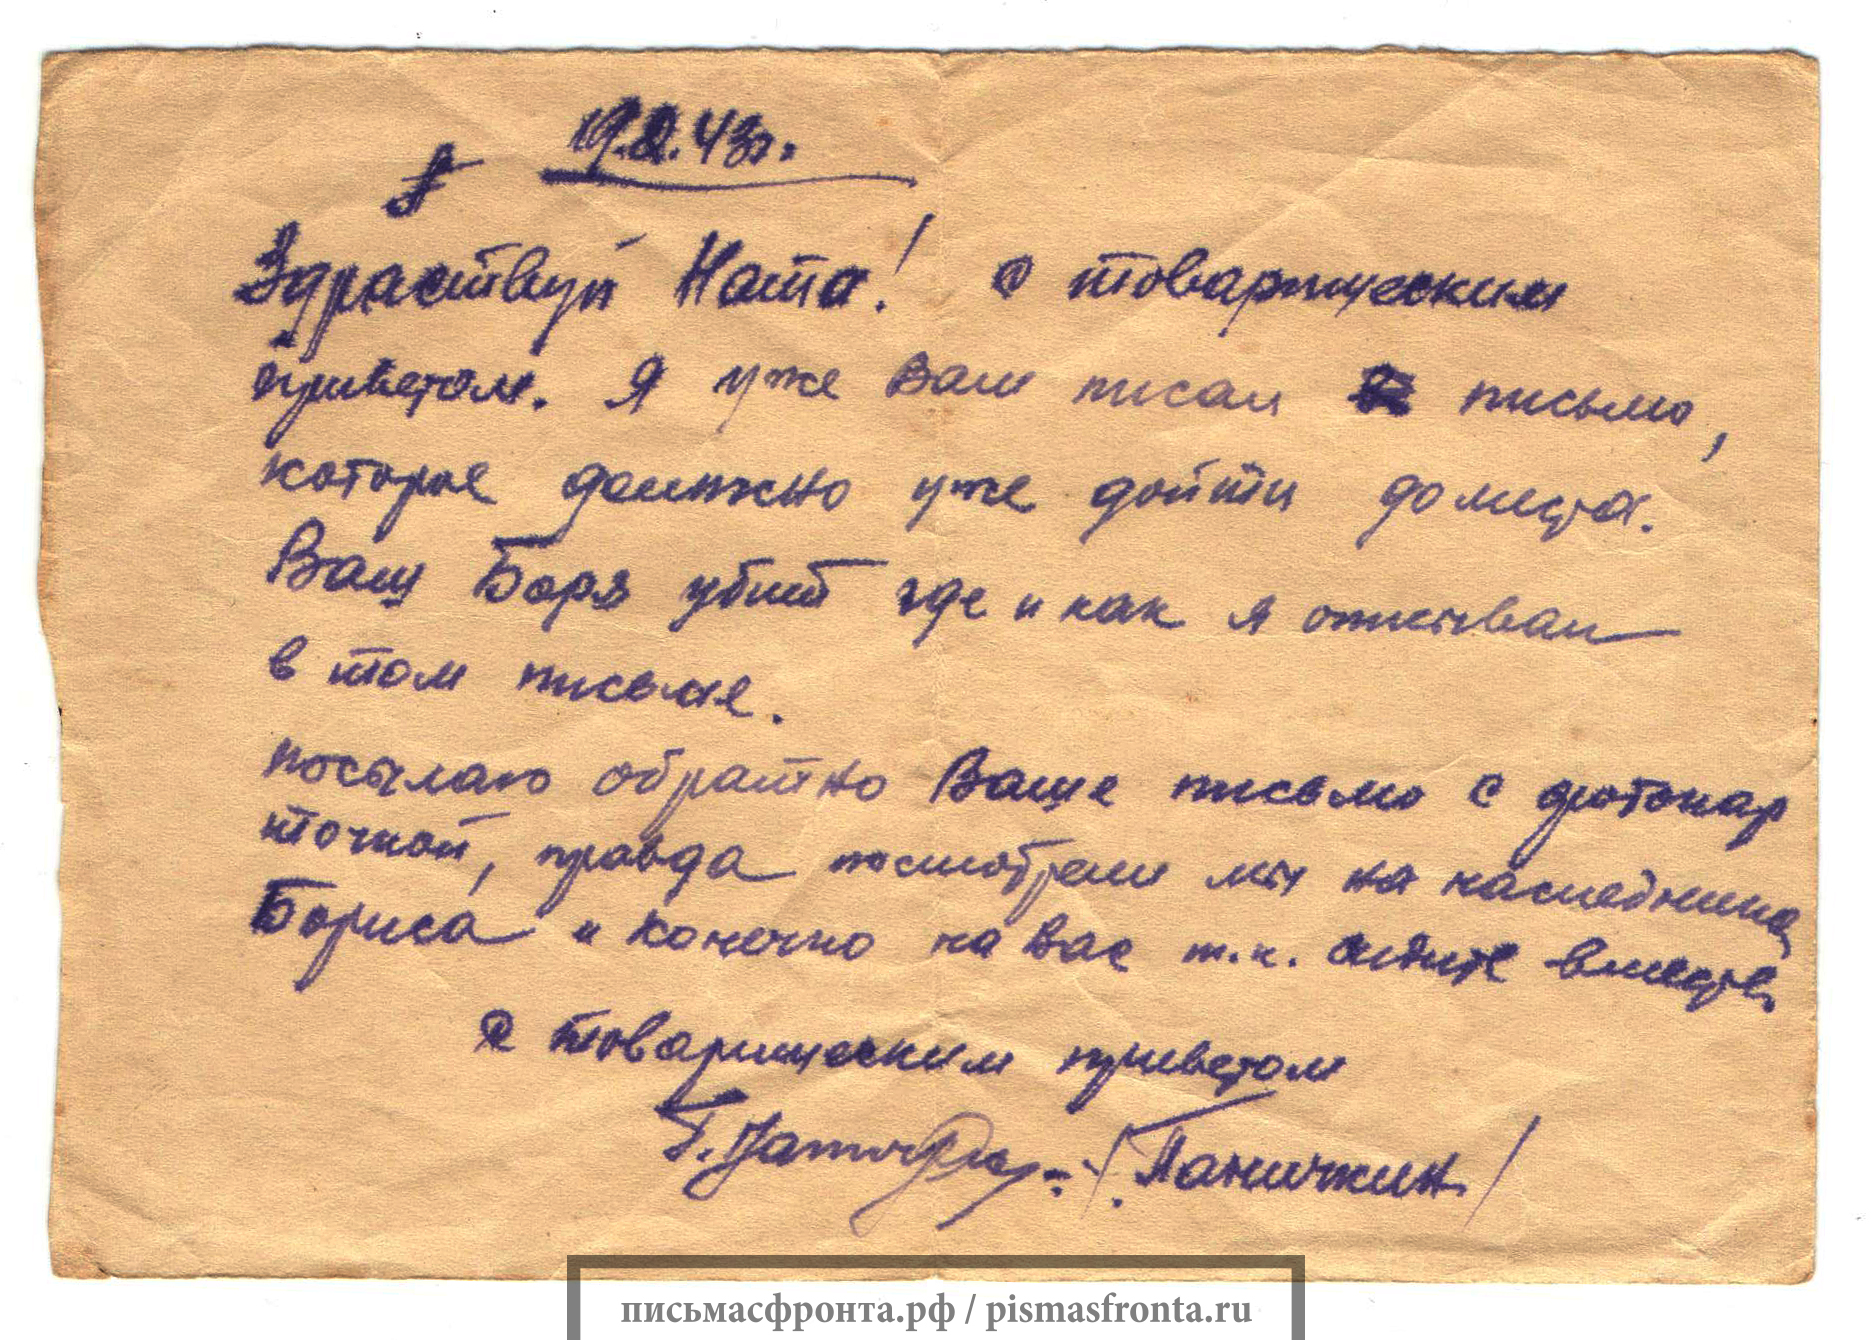 19.2.43г.
Здраствуй Ната! с товарищеским
приветом. Я уже Вам писал письмо,
которое должно уже дойти до места.
Ваш Боря убит где и как я описывал
в том письме.
посылаю обратно Ваше письмо с фотокар
точкой, правда посмотрели мы на наследника
Бориса и конечно на Вас т.к. сидите вместе.
с товарищеским приветом
/Паничкин/
письмасфронта.рф / pismasfronta.ru